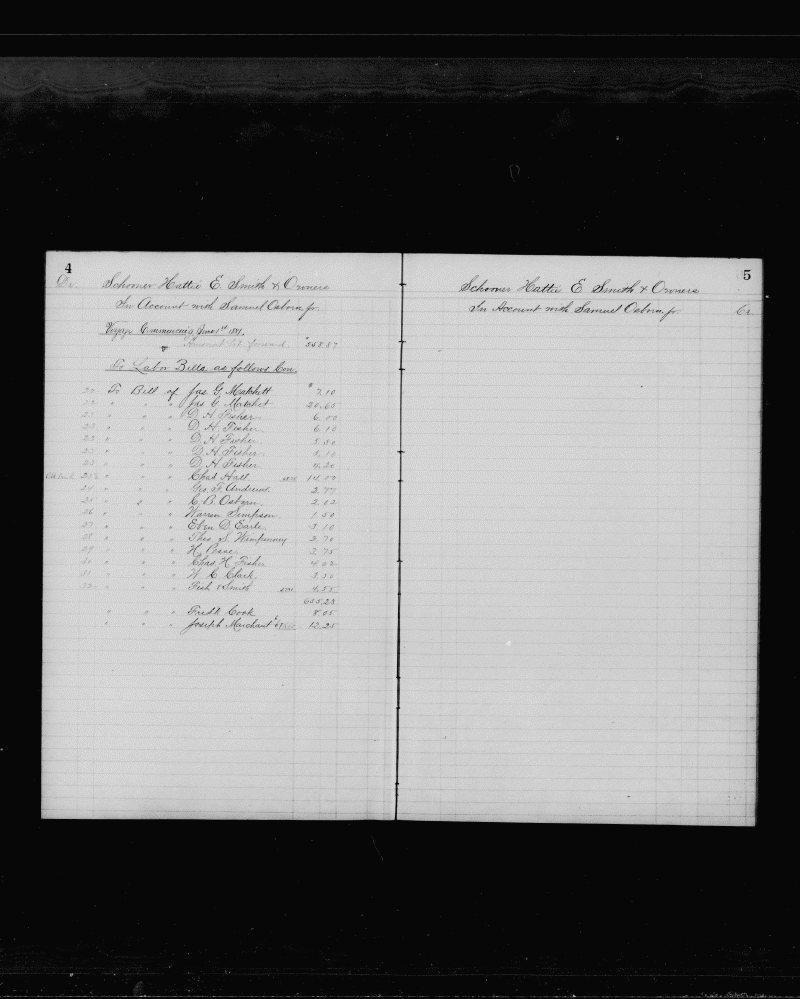 4
Dr. Schooner Hattie E Smith & Owners
In Account with Samuel Osborn, jr.
Voyage Commencing June 1st
Amount forward $558.57
To Labor Bills as follows Con.
To Bill of Jas G Matchett $ 7.10
" " " Jas G Matchet 20.65
23 " " " D. H. Fisher 6.00
23 " " " D. H. Fisher 6.10
23 " " " D. H. Fisher
23 " " " D. H. Fisher
23 " " " D. H. Fisher 4.20
" " " Chas Hall 14.00
24 " " " Geo. F. Andrews. 2.77
25 " " " C. B. Osborn. 2.02
26 " " " Warren Simpson. 1.50
27 " " " Eben D. Earle. 3.10
28 " " " Theo. S. Wimpenney 2.70
29 " " " H. Pease 2.75
30 " " " Chas H. Fisher 4.02
31 " " " W. C. Clark.
32 " " " Fish & Smith 4.55
655.23
" " " Fredk Cook 8.05
" " " Joseph Marchant 12.25
5
Schooner Hattie E Smith & Owners
In Account with Samuel Osborn, jr. Cr.